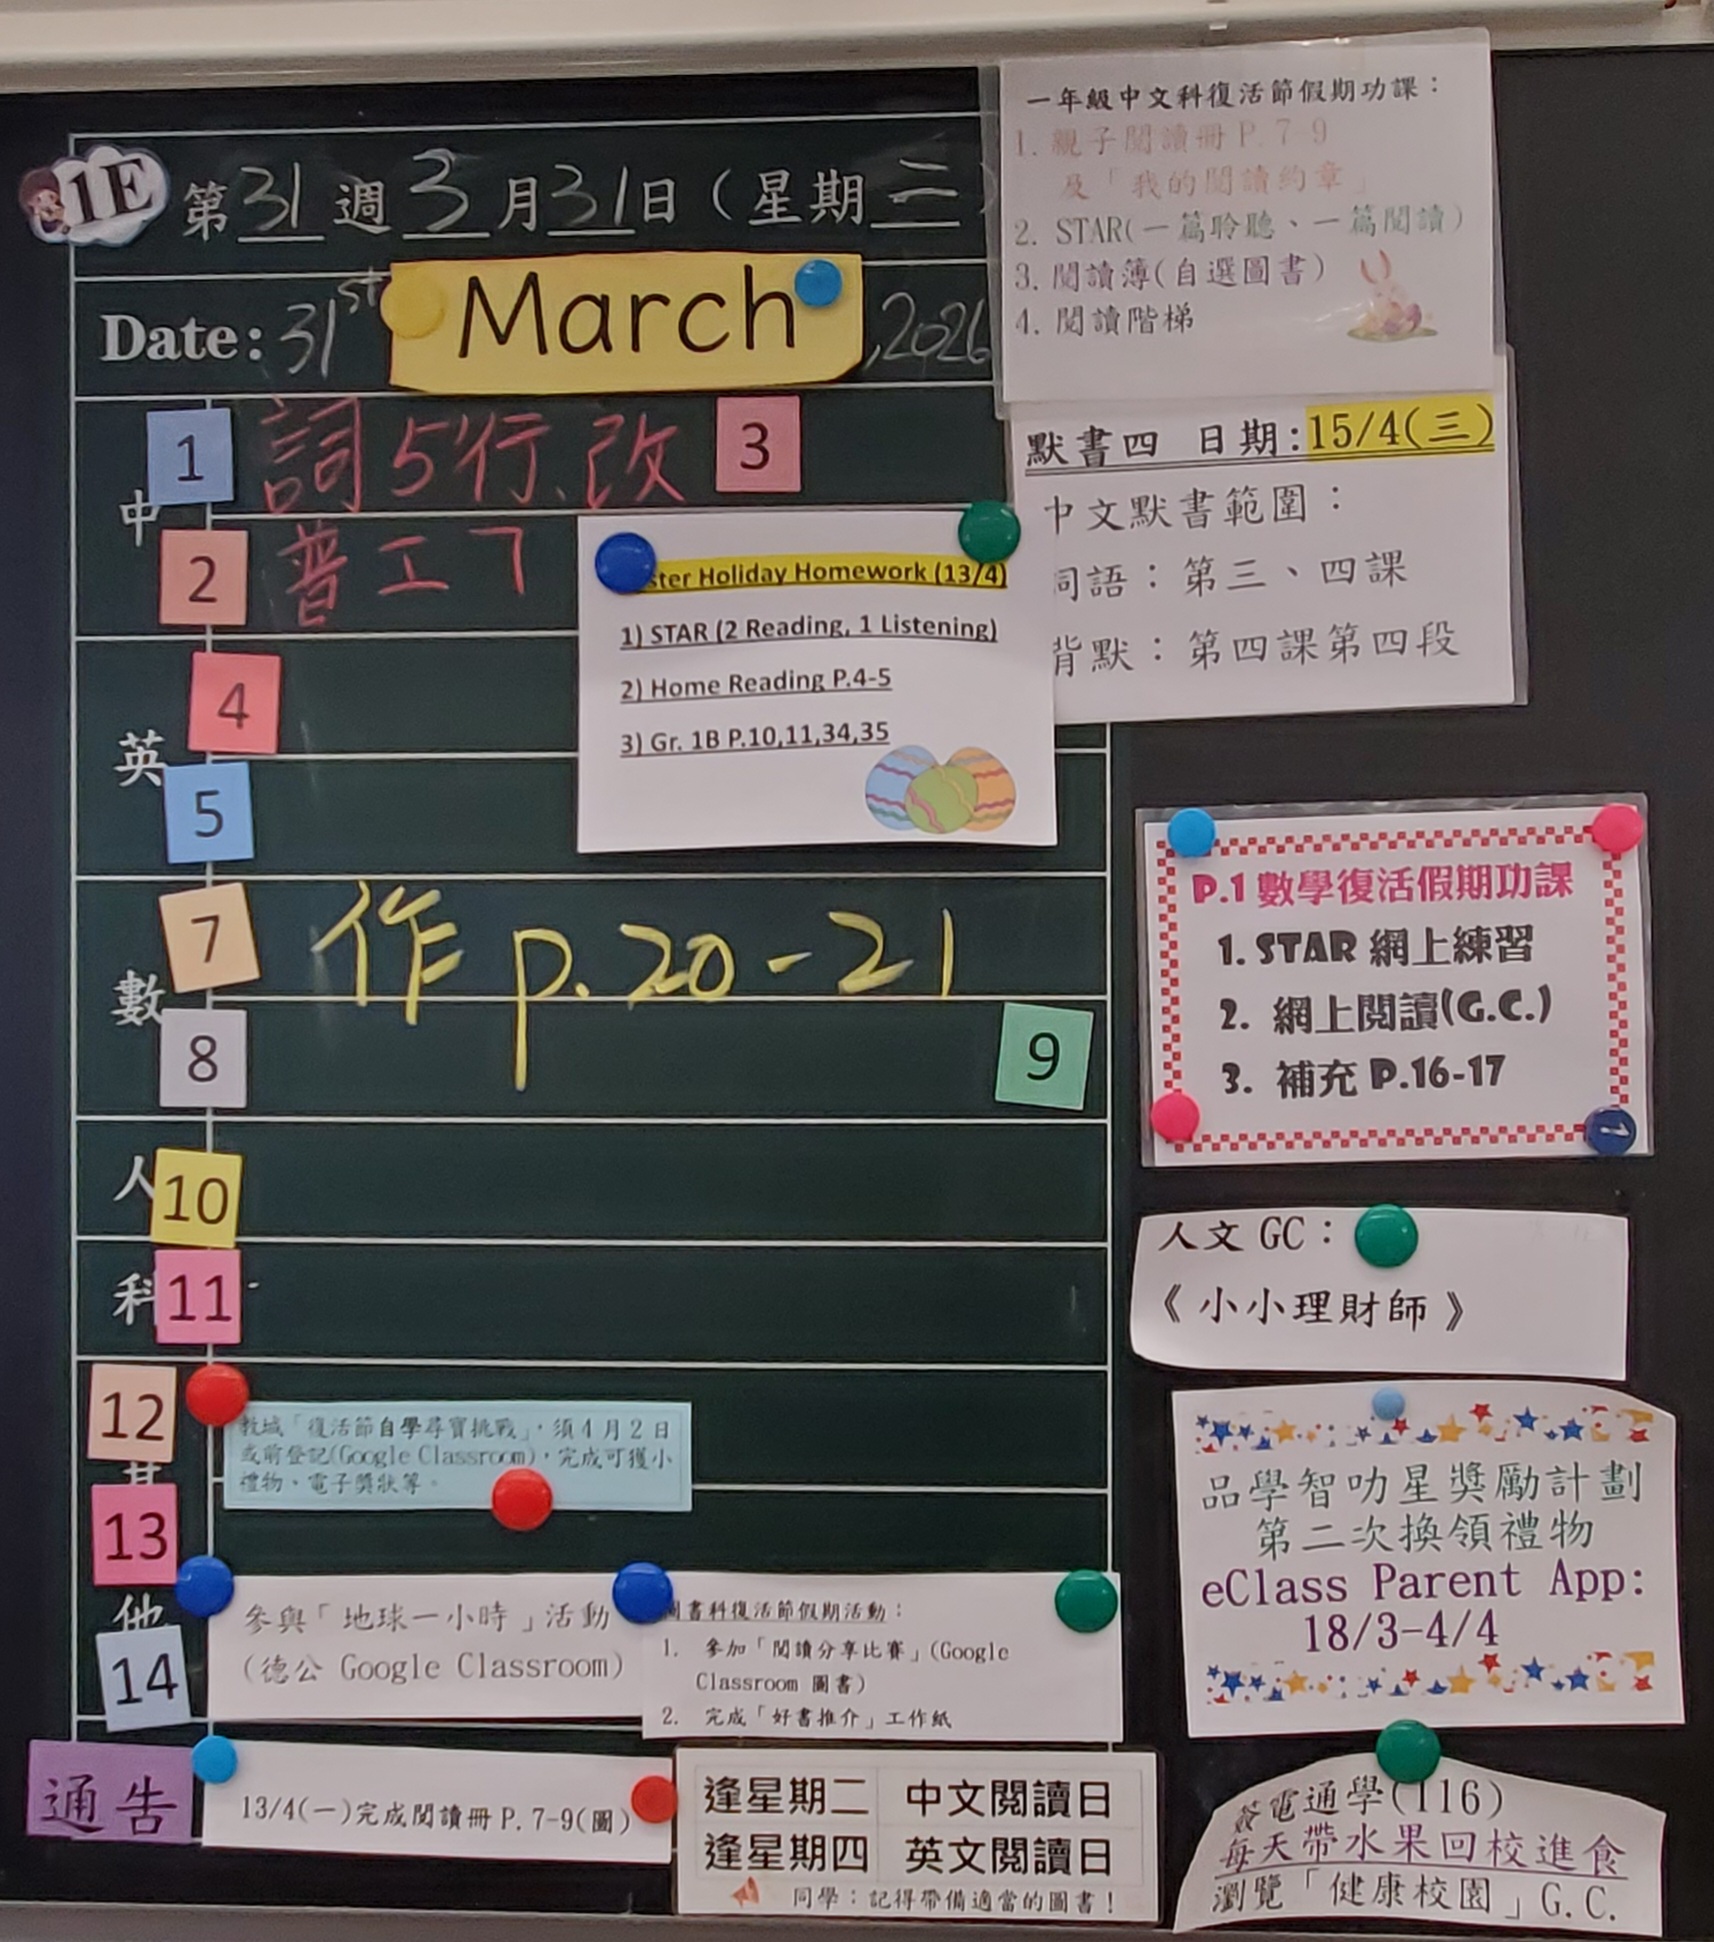 1E
第31週3月31日(星期二
Date: 31st March, 2026
中
1 詞5行、改 3
2 普工7
英
4
5
數
7 作 p.20-21
8
9
人
10
科
11
12
教城「復活節自學尋寶挑戰」,須4月2日
或前登記(Google Classroom),完成可獲小
禮物、電子獎狀等。
13
他
14
參與「地球一小時」活動
(德公 Google Classroom)
圖書科復活節假期活動:
1. 參加「閱讀分享比賽」(Google
Classroom 圖書)
2. 完成「好書推介」工作紙
通告
13/4(一)完成閱讀冊 P.7-9(圖)
逢星期二 中文閱讀日
逢星期四 英文閱讀日
同學:記得帶備適當的圖書!
一年級中文科復活節假期功課:
1. 親子閱讀冊 P.7-9
及「我的閱讀約章」
2. STAR(一篇聆聽、一篇閱讀)
3. 閱讀簿(自選圖書)
4. 閱讀階梯
默書四 日期:15/4(三)
中文默書範圍:
詞語:第三、四課
背默:第四課第四段
ster Holiday Homework (13/4)
1) STAR (2 Reading, 1 Listening)
2) Home Reading P.4-5
3) Gr. 1B P.10,11,34,35
P.1 數學復活假期功課
1. STAR 網上練習
2. 網上閱讀(G.C.)
3. 補充 P.16-17
人文 GC:
《小小理財師》
品學智叻星獎勵計劃
第二次換領禮物
eClass Parent App:
18/3-4/4
簽電通學(116)
每天帶水果回校進食
瀏覽「健康校園」G.C.